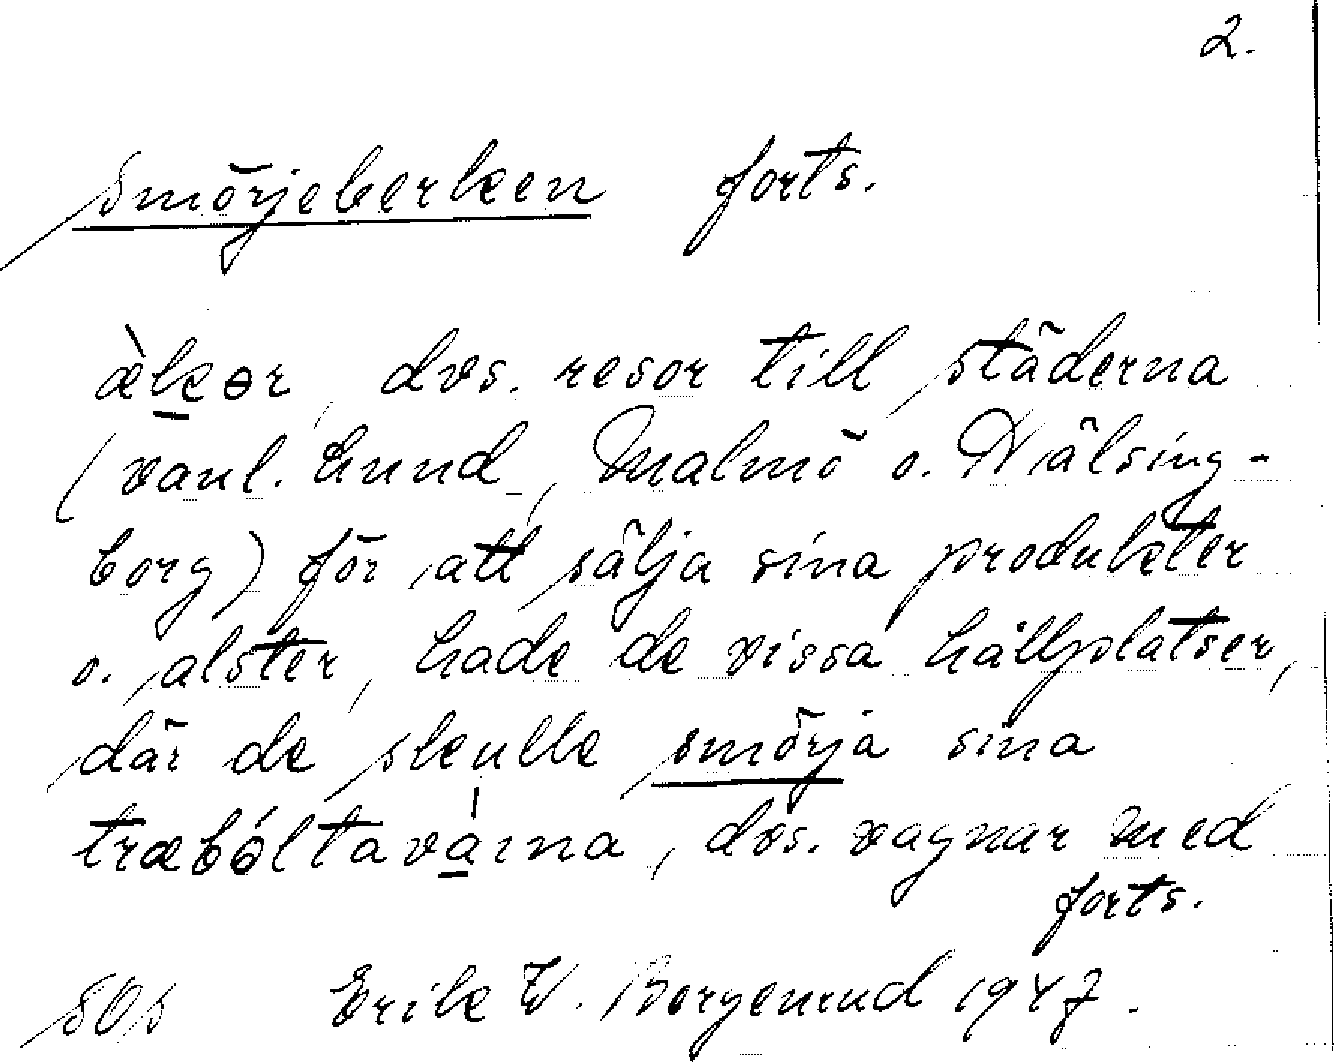 2.
smörjeberken forts.
æ̀kər, dvs. resor till städerna
(vanl. Lund, Malmö o. Hälsing-
borg) för att sälja sina produkter
o. alster, hade de vissa hållplatser,
där de skulle smörja sina
dvs. vagnar med
forts.
Erik W. 1947.